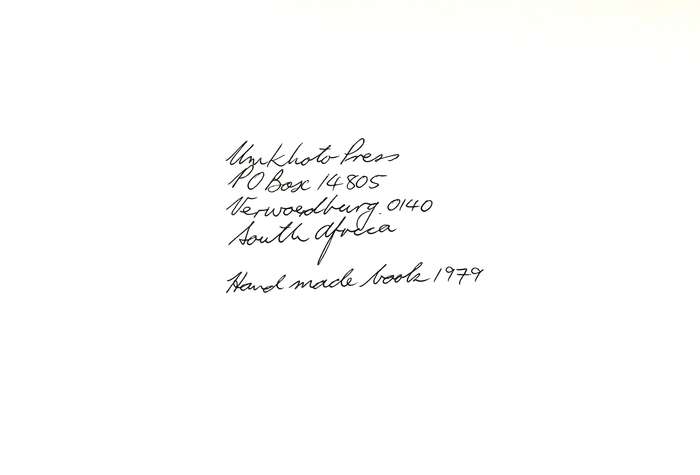 Umkhoto Press
PO Box 14805
Verwoerdburg. 0140
South Africa
Hand made book 1979